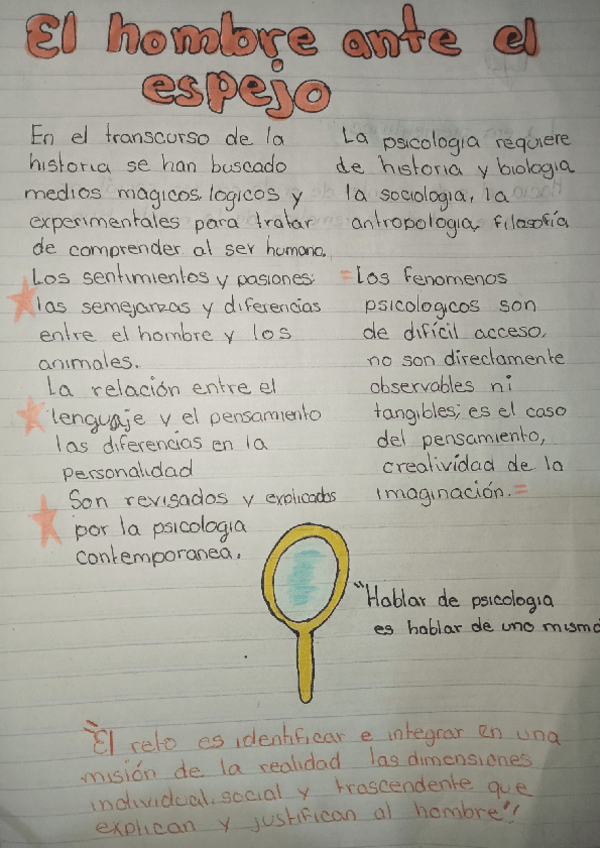 El hombre ante el
espejo
En el transcurso de la
historia se han buscado
medios magicos, logicos y
experimentales para tratar
de comprender al ser humano.
Los sentimientos y pasiones:
las semejanzas y diferencias
entre el hombre y los
animales.
La relación entre el
lenguaje y el pensamiento
las diferencias en la
personalidad
Son revisados y explicados
por la psicologia
contemporanea.
La psicologia requiere
de historia y biologia
la sociologia, la
antropologia, filosofía
=Los fenomenos
psicologicos son
de difícil acceso,
no son directamente
observables ni
tangibles; es el caso
del pensamiento,
creatividad de la
imaginación.=
"Hablar de psicologia
es hablar de uno mismo
"El reto es identificar e integrar en una
misión de la realidad las dimensiones
individual, social y trascendente que
explican y justifican al hombre"!